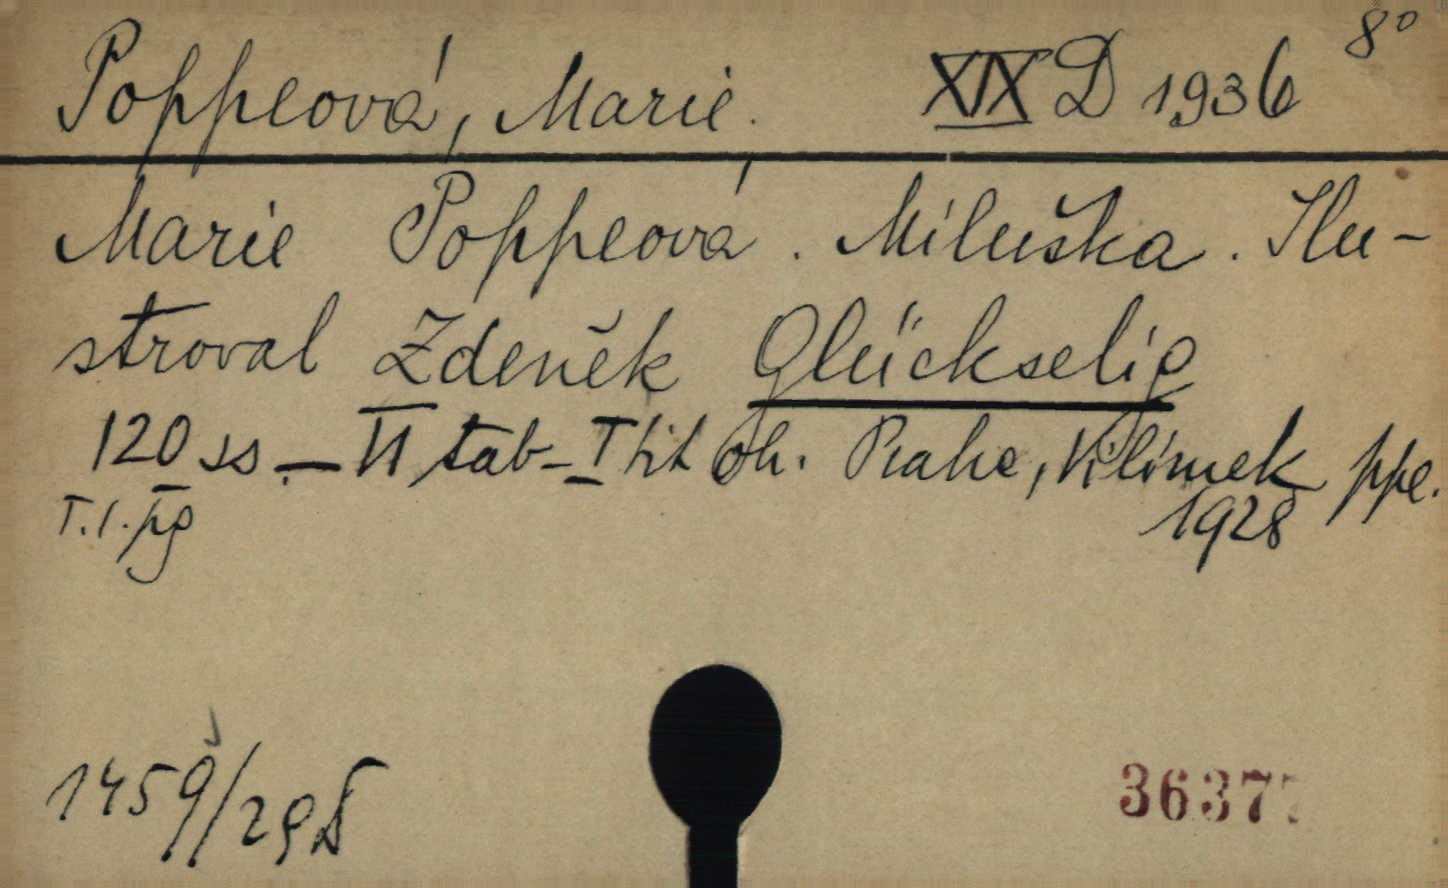 8°
Poppeová, Marie. XIX D 1936
Marie Poppeová. Miluška. Ilu-
stroval Zdeněk Glückselig
120 ss – II tab – I tit ob. Praha, Vilímek ppe.
T.I. pg 1928
1459/29 D
36377